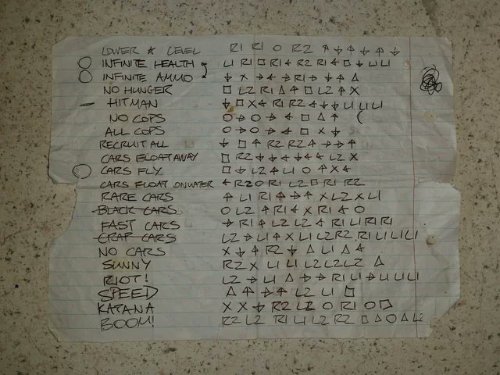 LOWER ☆ LEVEL R1 R1 O R2 ↑ ↓ ↑ ↓ ↑ ↓
INFINITE HEALTH L1 R1 □ R1 ← R2 R1 ← □ ↓ L1 L1
INFINITE AMMO ↓ X → ← → R1 → ↓ ↑ △
NO HUNGER □ L2 R1 △ ↑ □ L2 ↑ X
HITMAN ↓ □ X ← R1 R2 ← ↓ ↓ L1 L1 L1
NO COPS O → O → ← □ △ ↑
ALL COPS O → O → ← □ X ↓
RECRUIT ALL ↓ □ ↑ R2 R2 ↑ → → ↑
CARS FLOAT AWAY □ R2 ↓ ↓ ← ↓ ← ← L2 X
CARS FLY □ ↓ L2 ↑ L1 O ↑ X ←
CARS FLOAT ON WATER → R2 O R1 L2 □ R1 R2
RARE CARS ↑ L1 R1 ↑ → ↑ X L2 X L1
BLACK CARS O L2 ↑ R1 ← X R1 ← O
FAST CARS → R1 ↑ L2 L2 ← R1 L1 R1 R1
CRAP CARS L2 → L1 ↑ X L1 L2 R2 R1 L1 L1 L1
NO CARS X ↓ ↑ R2 ↓ △ L1 △ ←
SUNNY R2 X L1 L1 L2 L2 L2 △
RIOT! L2 → L1 △ → → R1 L1 → L1 L1 L1
SPEED △ ↑ → ↓ L2 L1 □
KATANA X X ↓ R2 L2 O R1 O □
BOOM! R2 L2 R1 L1 L2 R2 □ △ O △ L2